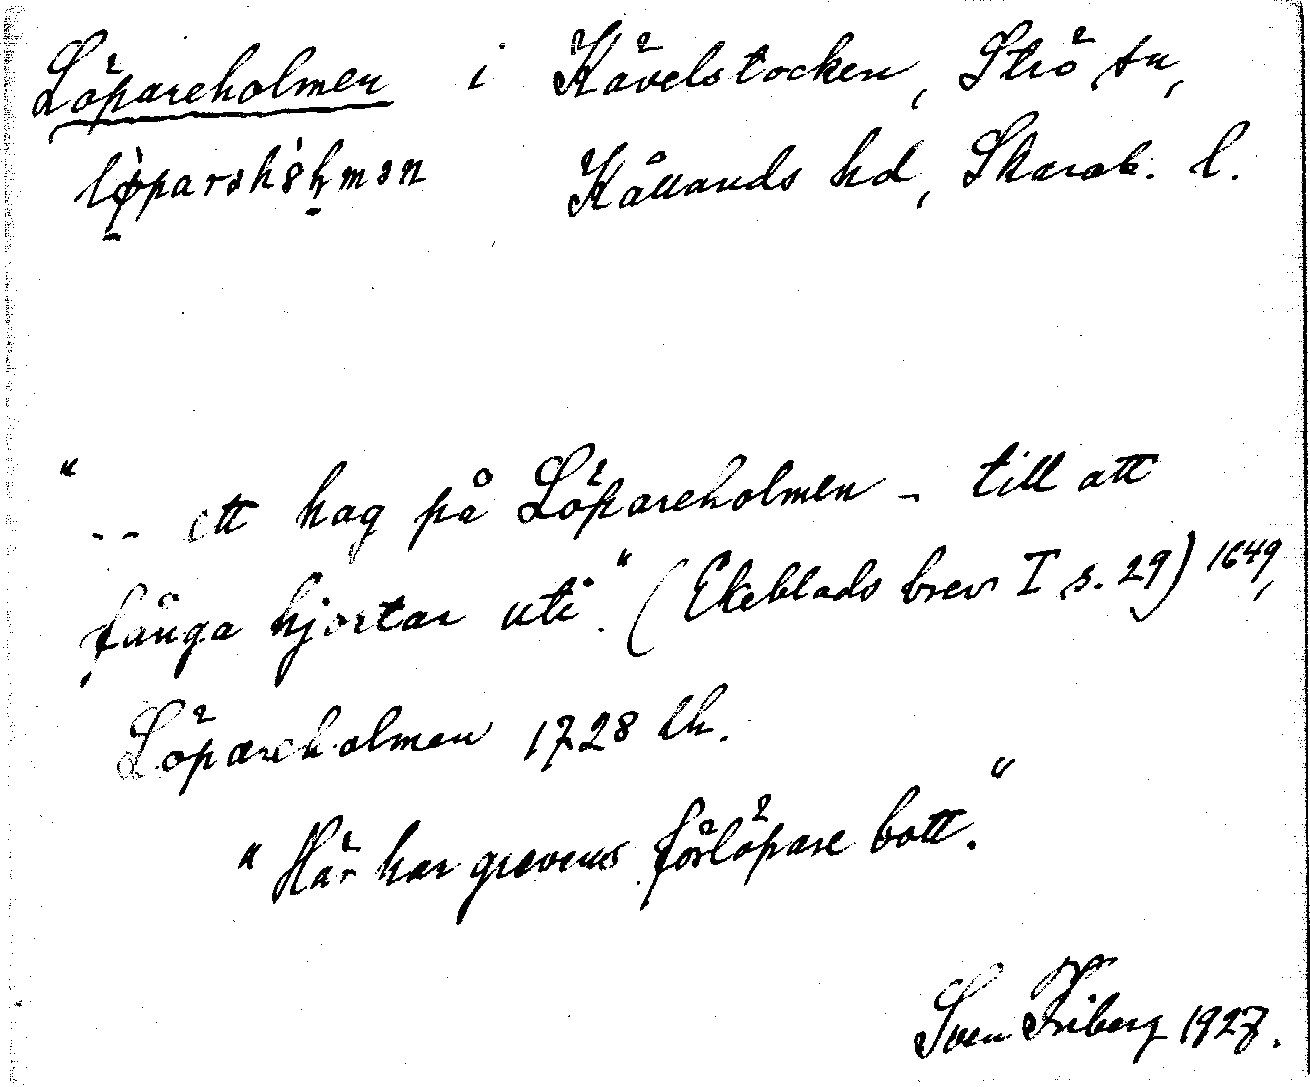 Löpareholmen i Kävelstocken, Strö sn,
Kållands hd, Skarab. l.
"-- ett hag på Löpareholmen - till att
fånga hjortar uti." (Ekeblads brev I s. 29) 1649,
Löpareholmen 1728 lk.
"Här har grevens förlöpare bott."
Sven Friberg 1927.